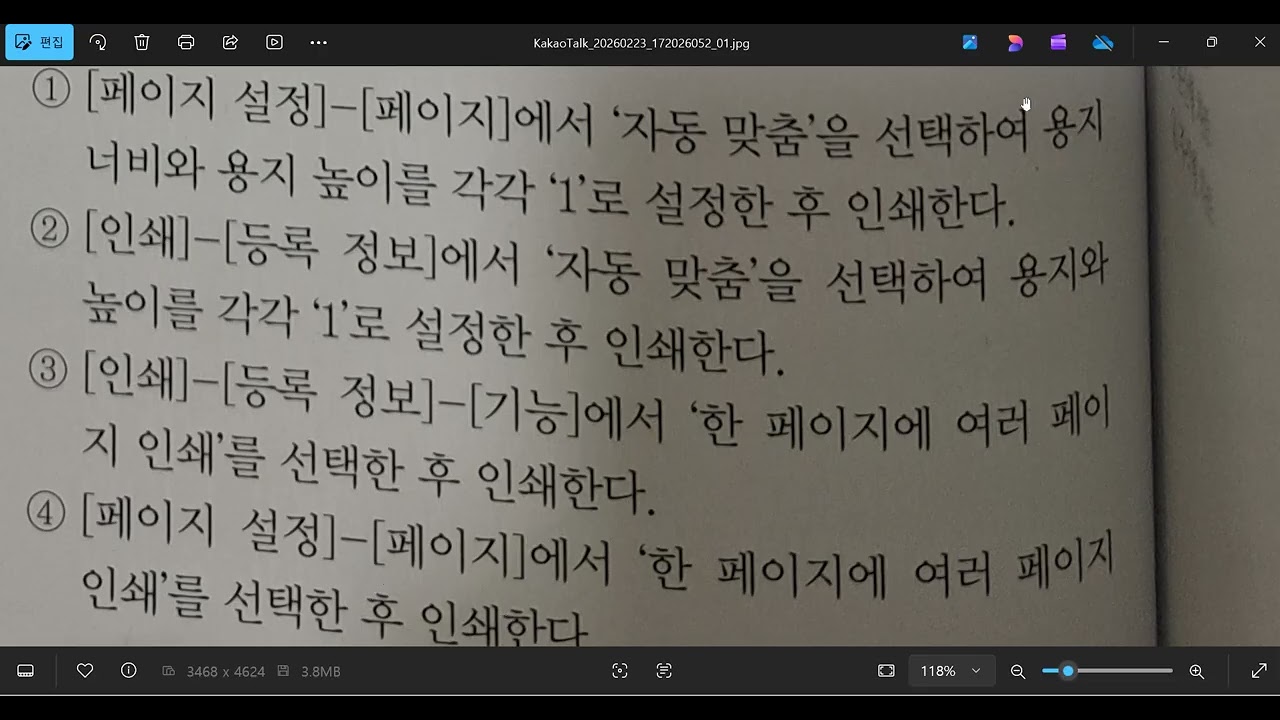 편집
KakaoTalk_20260223_172026052_01.jpg
① [페이지 설정]-[페이지]에서 ‘자동 맞춤’을 선택하여 용지
너비와 용지 높이를 각각 ‘1’로 설정한 후 인쇄한다.
② [인쇄]-[등록 정보]에서 ‘자동 맞춤’을 선택하여 용지와
높이를 각각 ‘1’로 설정한 후 인쇄한다.
③ [인쇄]-[등록 정보]-[기능]에서 ‘한 페이지에 여러 페이
지 인쇄’를 선택한 후 인쇄한다.
④ [페이지 설정]-[페이지]에서 ‘한 페이지에 여러 페이지
인쇄’를 선택한 후 인쇄한다
3468 x 4624 3.8MB 118%